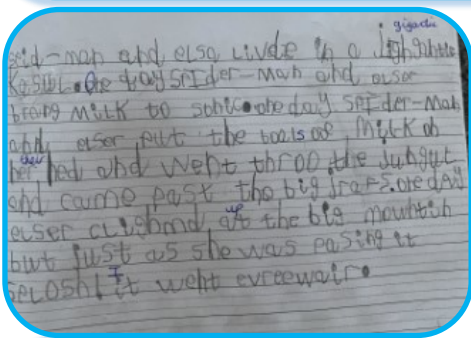 gigantic
Seid-man and elsa livde in a
Kasul. One day SPIder-man and elser
brang MilK to schic. one day SPIder-Man
and elser put the bools of MilK on
their hed and went throo the Jungul
and came past the big traps. one day
elser clighmd up the big mowntin
but just as she was pasing it
SPLOSH! It went evreewair.